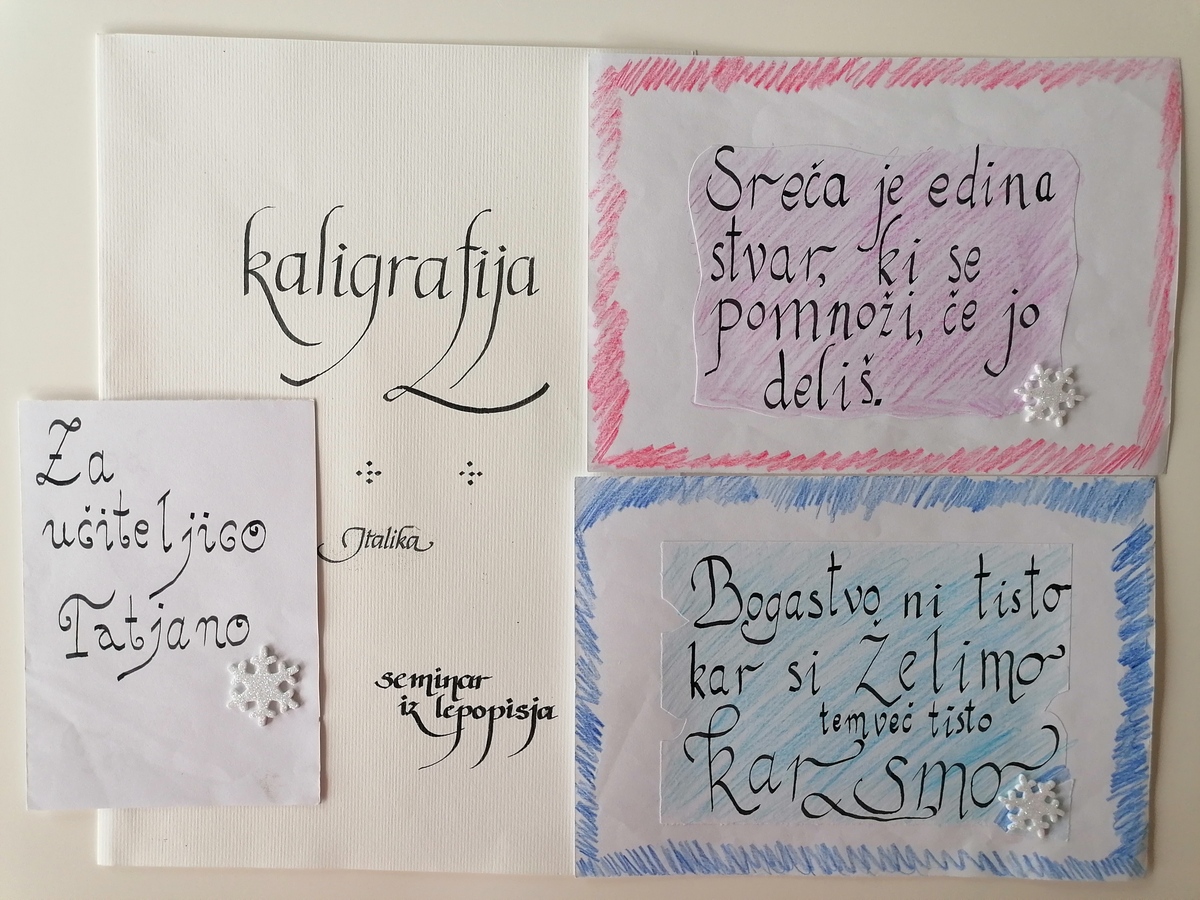 kaligrafija
Italika
seminar
iz lepopisja
Za
učiteljico
Tatjano
Sreča je edina
stvar, ki se
pomnoži, če jo
deliš.
Bogastvo ni tisto
kar si želimo
temveč tisto
kar smo